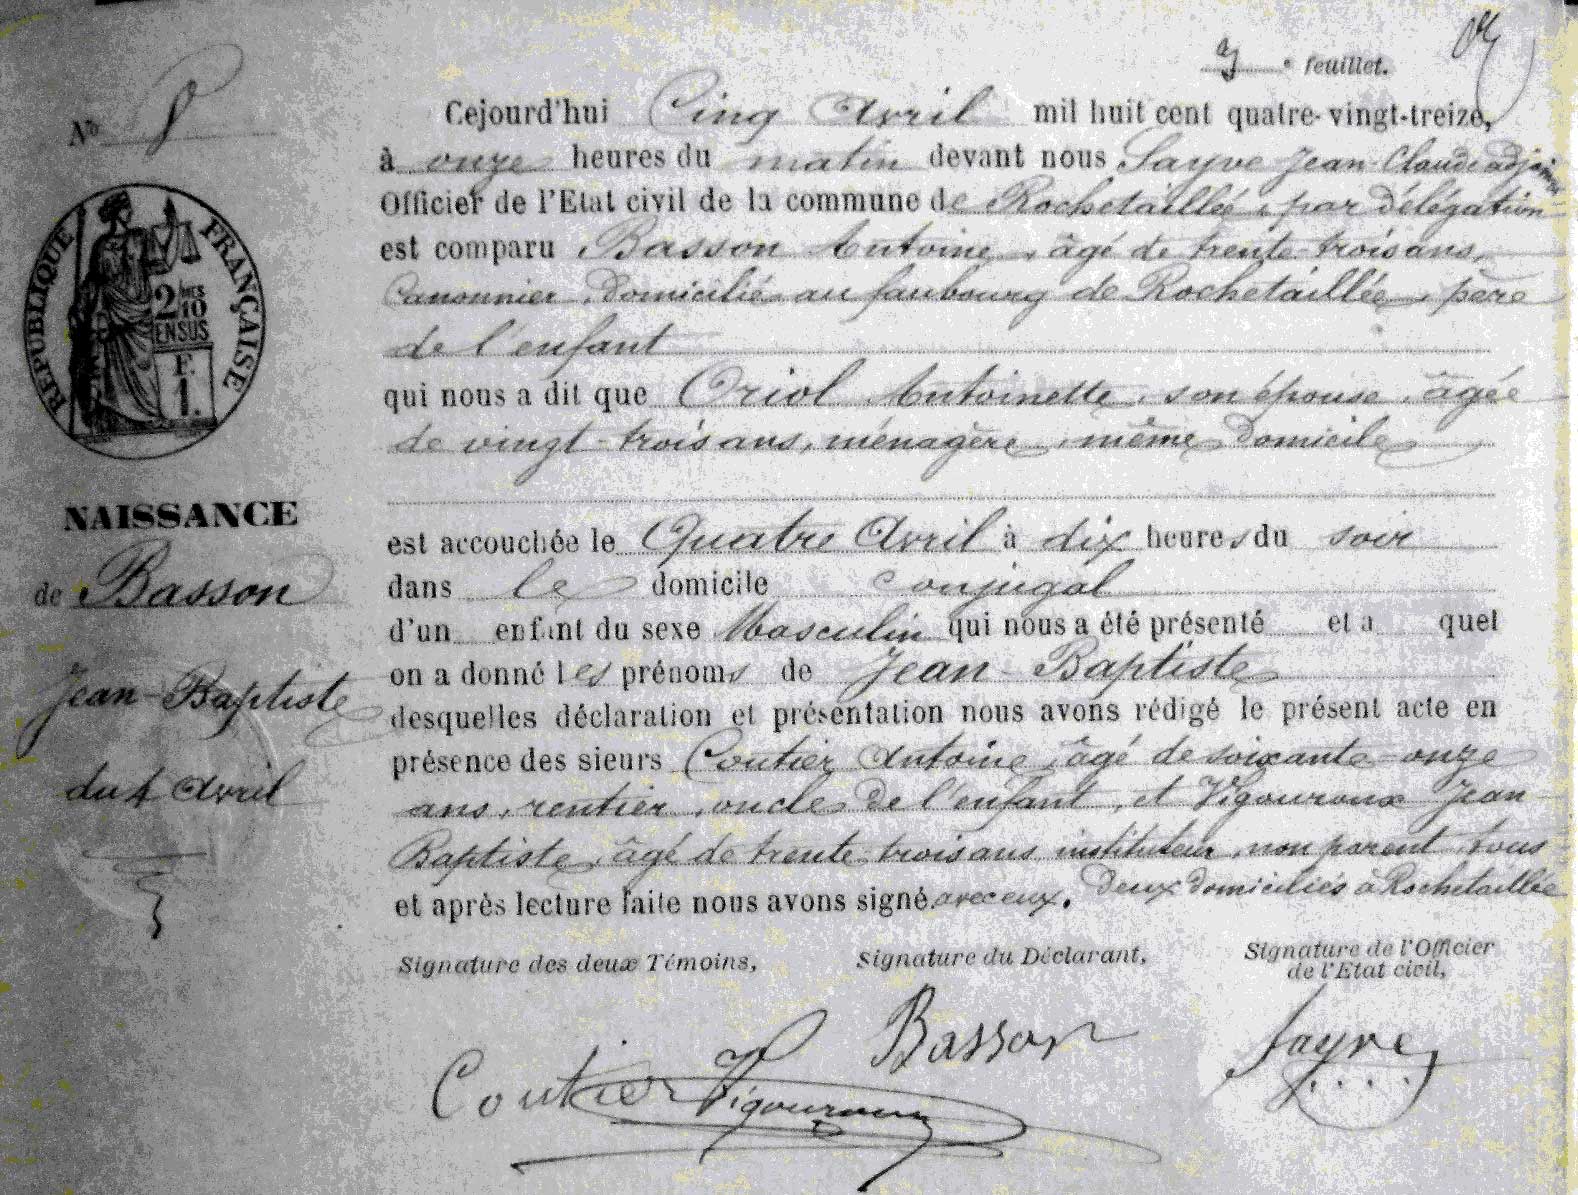 3 e feuillet.
Nº 8
Cejourd'hui Cinq Avril mil huit cent quatre-vingt-treize,
à onze heures du matin devant nous Sayve Jean-Claude adjoint
Officier de l'Etat civil de la commune de Rochetaillée, par délégation
est comparu Basson Antoine, âgé de trente-trois ans,
Canonnier, domicilié au faubourg de Rochetaillée, père
de l'enfant
qui nous a dit que Oriol Antoinette, son épouse, âgée
de vingt-trois ans, ménagère, même domicile
est accouchée le Quatre Avril à dix heures du soir
dans le domicile conjugal
d'un enfant du sexe Masculin qui nous a été présenté et a quel
on a donné les prénoms de Jean-Baptiste
desquelles déclaration et présentation nous avons rédigé le présent acte en
présence des sieurs Coutier Antoine, âgé de soixante-onze
ans, rentier, oncle de l'enfant, et Vigouroux Jean
Baptiste, âgé de trente-trois ans, instituteur, non parent, tous
deux domiciliés à Rochetaillée
et après lecture faite nous avons signé avec eux.
RÉPUBLIQUE FRANÇAISE
2/10
EN SUS
F.
1.
NAISSANCE
de Basson
Jean-Baptiste
du 4 Avril
Signature des deux Témoins,
Signature du Déclarant,
Signature de l'Officier
de l'Etat civil,
Coutier
Vigouroux
Basson
Sayve